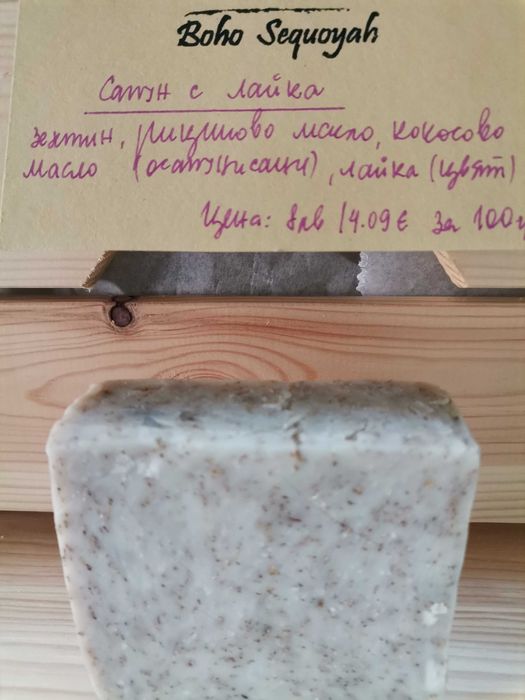 Boho Sequoyah
Сапун с лайка
Зехтин, рициново масло, кокосово
масло (осапунисани), лайка (цвят)
Цена: 8лв /4.09€ за 100г